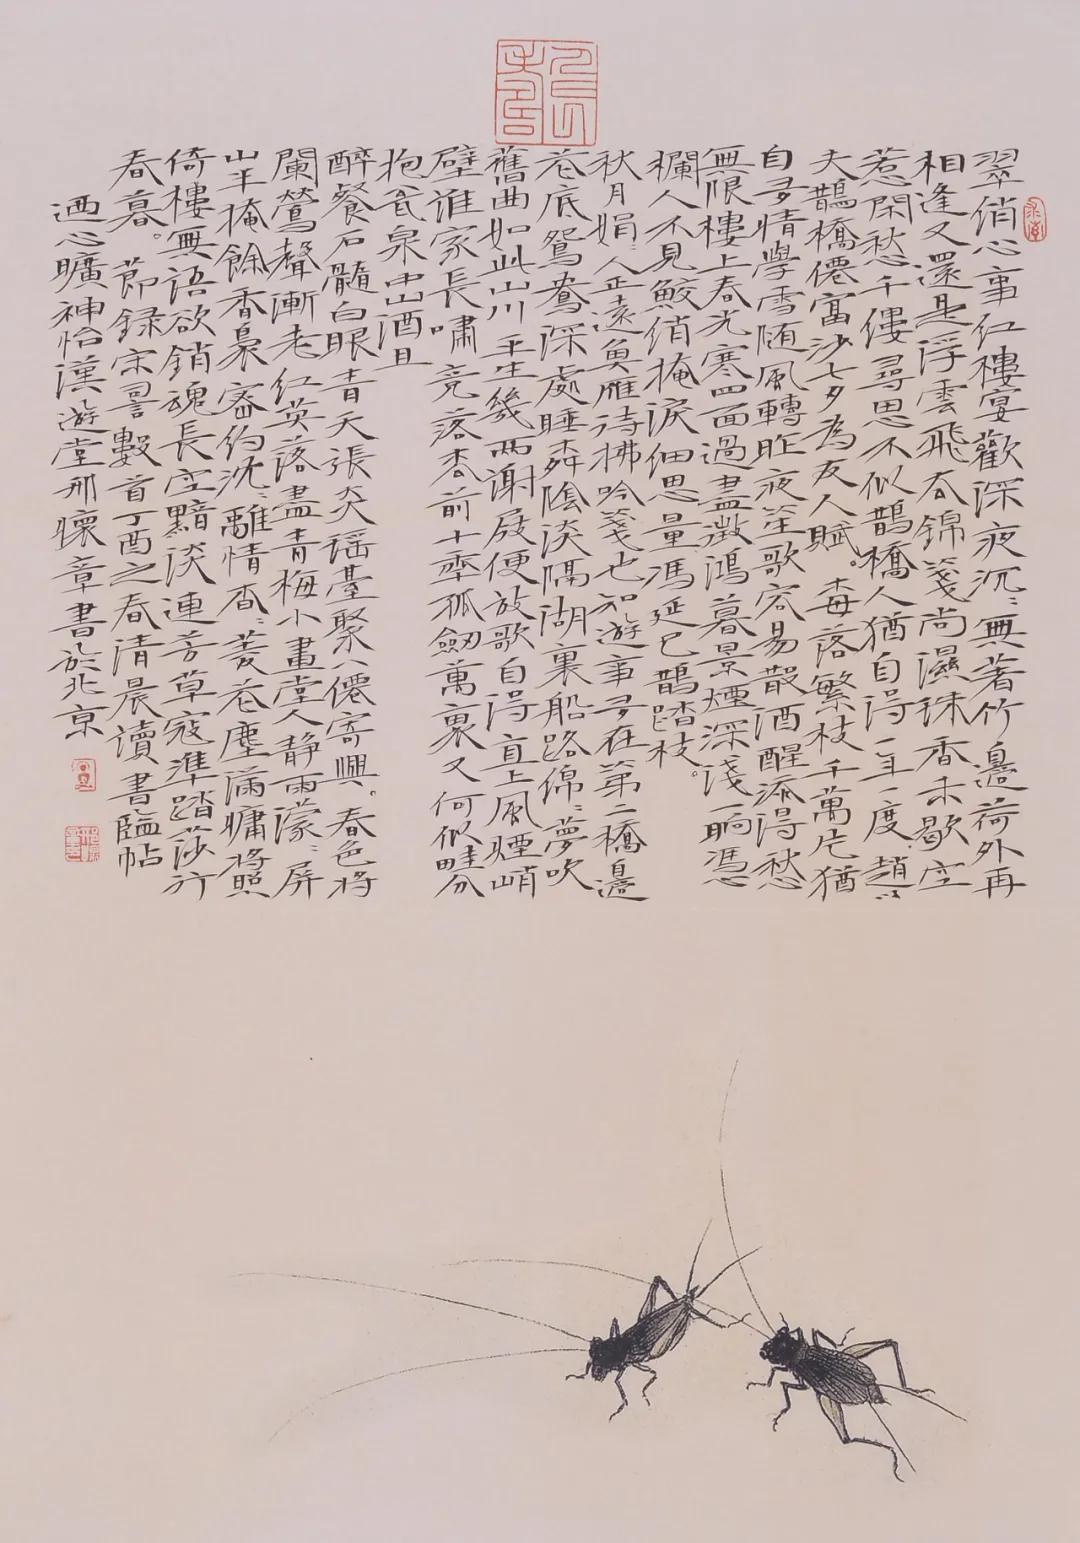 翠俏心事红樓宴歡深夜沉〻無著竹邊荷外再
相逢又還是浮雲飛去錦箋尚濕珠香未歇空
惹閑愁千縷尋思不似鵲橋人猶自得一年一度趙以
夫鵲橋僊富沙七夕為友人賦。梅落繁枝千萬片猶
自多情學雪随風轉昨夜笙歌容易散酒醒添得愁
無限樓上春光寒四面過盡徵鴻暮景煙深淺一晌馮
欄人不見鮫俏掩淚細思量馮延巳鵲踏枝。
秋月娟〻人正遠魚雁待拂吟箋也知遊事多在第二橋邊
花底鴛鴦深處睡柳陰淡隔湖裏船路綿〻夢吹
舊曲如此山川 平生幾兩謝屐便放歌自得直上風煙峭
壁誰家長嘯竟落松前十乘孤劒萬里又何似畦分
抱瓮泉中山酒且
醉餐石髓白眼青天張炎瑶臺聚八僊寄興。春色將
闌鶯聲漸老红英落盡青梅小畫堂人静雨濛〻屏
山半掩餘香裊密約沈〻離情杳〻菱花塵滿慵將照
倚樓無語欲銷魂長空黯淡連芳草寇準踏莎行
春暮。節録宋詞數首丁酉之春清晨讀書臨帖
迺心曠神怡漢遊堂邢懷章書於北京